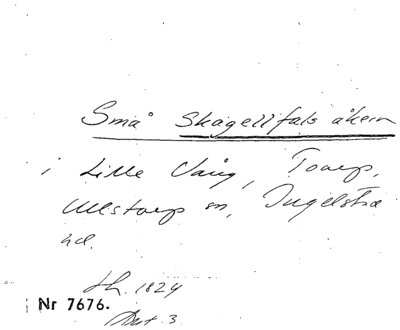 Små Skagellfals åkern
i Lille Vång, Torup,
Ullstorp sn, Ingelsta
hd.
Lh. 1824
Nr 7676.
Akt. 3